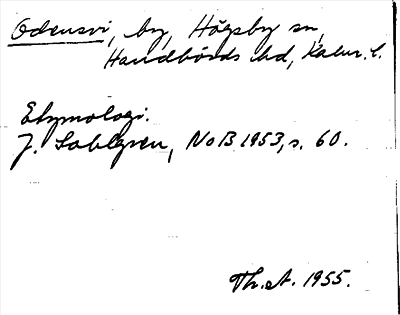 Odensvi, by, Högsby sn,
Handbörds hd, Kalm. l.
Etymologi.
J. Sahlgren, NoB 1953, s. 60.
Th. et. 1955.